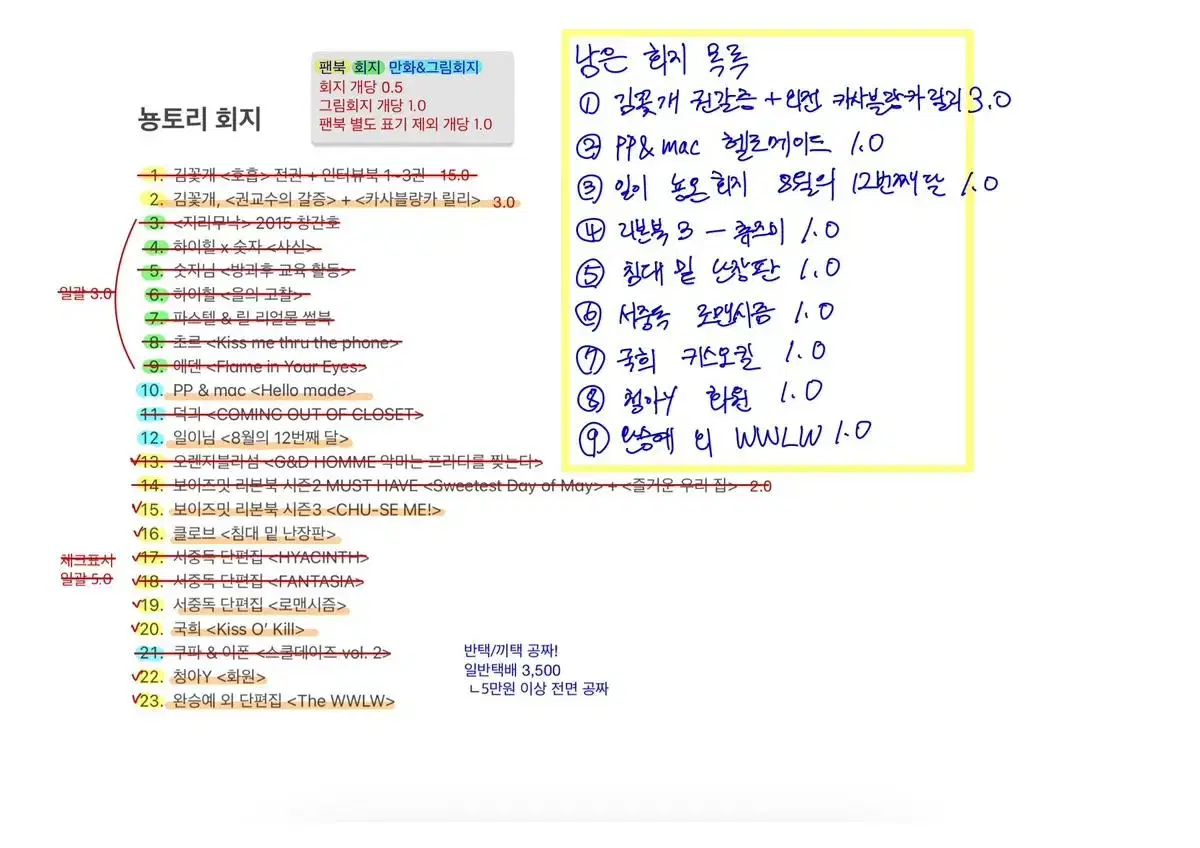 팬북 회지 만화&그림회지
회지 개당 0.5
그림회지 개당 1.0
팬북 별도 표기 제외 개당 1.0
뇽토리 회지
1. 김꽃개 <호흡> 전권 + 인터뷰북 1-3권 15.0
2. 김꽃개, <권교수의 갈증> + <카사블랑카 릴리> 3.0
3. <지리무낙> 2015 창간호
4. 하이힐 x 숫자 <사신>
5. 숫자님 <방과후 교육 활동>
일괄 3.0
6. 하이힐 <을의 고찰>
7. 파스텔 & 릴 리얼물 썰북
8. 초르 <Kiss me thru the phone>
9. 에덴 <Flame in Your Eyes>
10. PP & mac <Hello made>
11. 덕괴 <COMING OUT OF CLOSET>
12. 일이님 <8월의 12번째 달>
✓13. 오렌지블라섬 <G&D HOMME 악마는 프라다를 찢는다>
14. 보이즈밋 리본북 시즌2 MUST HAVE <Sweetest Day of May> + <즐거운 우리 집> 2.0
✓15. 보이즈밋 리본북 시즌3 <CHU-SE ME!>
✓16. 클로브 <침대 밑 난장판>
체크표시
일괄 5.0
✓17. 서중독 단편집 <HYACINTH>
✓18. 서중독 단편집 <FANTASIA>
✓19. 서중독 단편집 <로맨시즘>
✓20. 국희 <Kiss O' Kill>
21. 쿠파 & 이폰 <스쿨데이즈 vol. 2>
✓22. 청아Y <화원>
✓23. 완승예 외 단편집 <The WWLW>
반택/끼택 공짜!
일반택배 3,500
ㄴ5만원 이상 전면 공짜
남은 회지 목록
① 김꽃개 권갈증 + 외전 카사블랑카 릴리 3.0
② PP& mac 헬로메이드 1.0
③ 일이 뇽온회지 8월의 12번째 달 1.0
④ 리본북 3 - 츄즈미 1.0
⑤ 침대 밑 난장판 1.0
⑥ 서중독 로맨시즘 1.0
⑦ 국희 키스오킬 1.0
⑧ 청아Y 화원 1.0
⑨ 완승예 외 WWLW 1.0